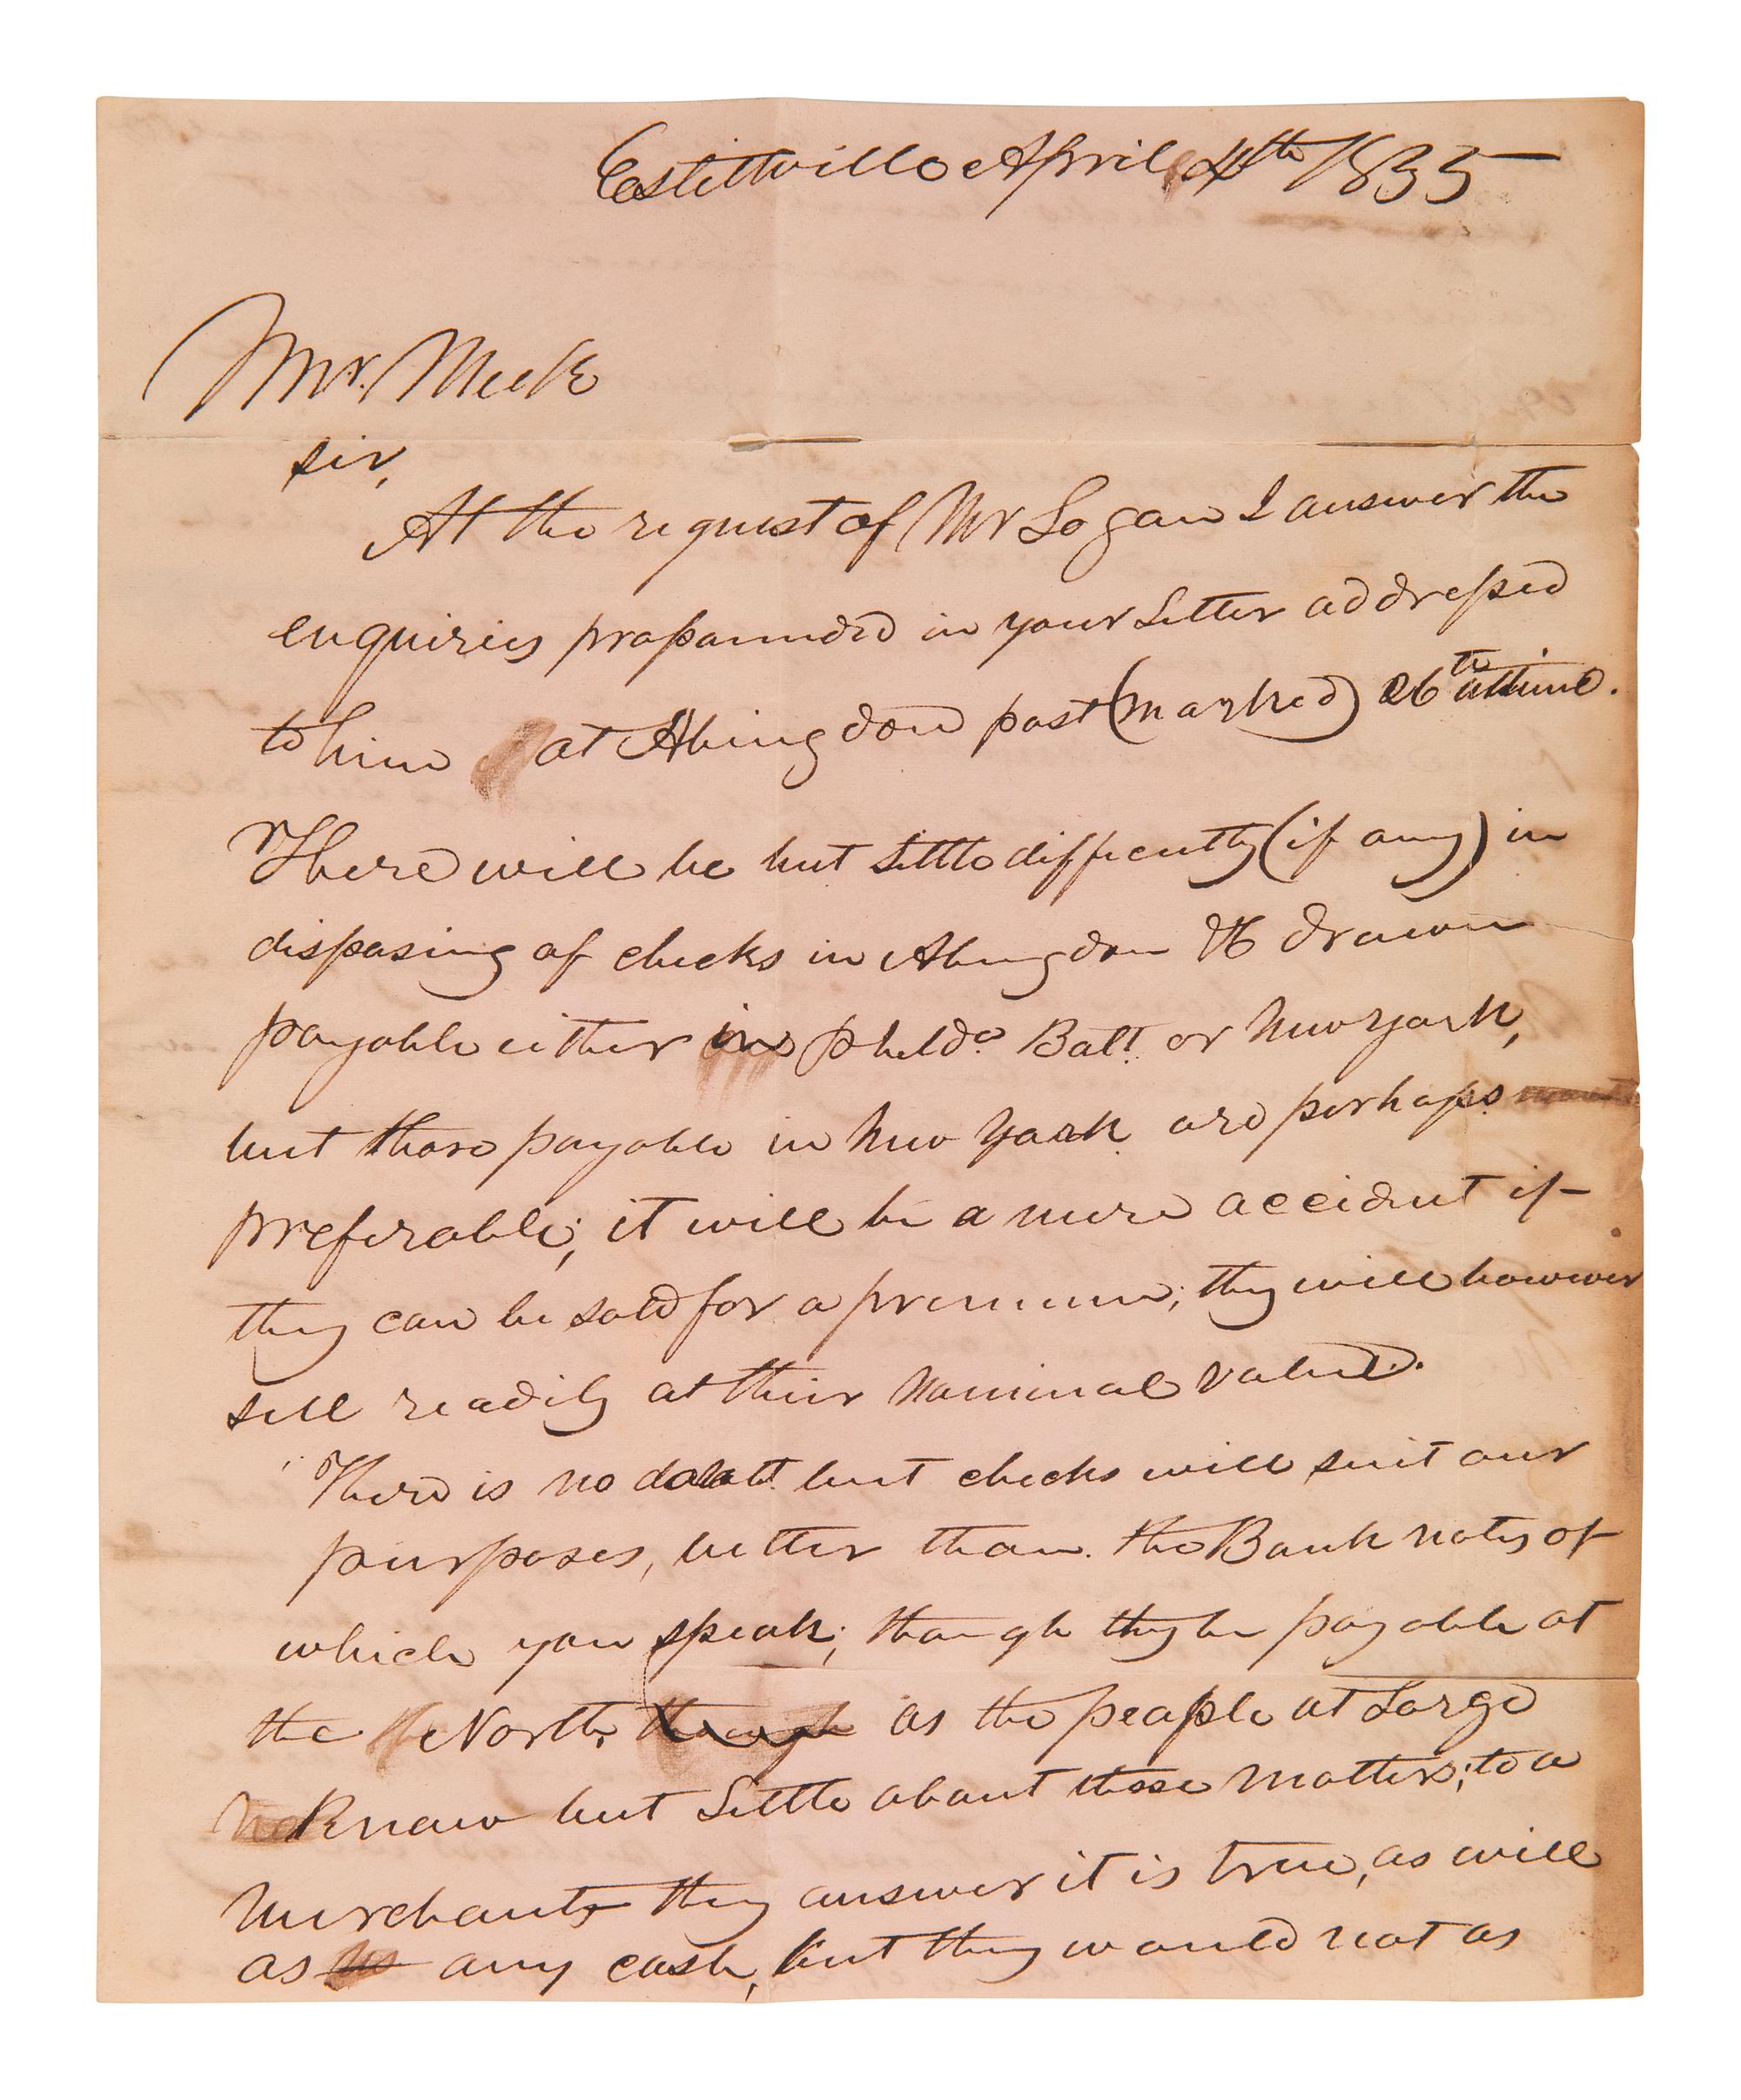 Estillville April 4th 1835
Mr. Meek
sir,
At the request of Mr Logan I answer the
enquiries propounded in your Letter addressed
to him at Abingdon post (marked) 26th ultimo.
There will be but Little difficulty (if any) in
disposing of checks in Abingdon if drawn
payable either in Philda. Balt. or New York,
but those payable in New York are perhaps
preferable; it will be a mere accident if
they can be sold for a premium; they will however
sell readily at their Nominal value.
There is no doubt but checks will suit our
purposes, better than. the Bank notes of
which you speak; though they be payable at
the North, though as the people at Large
Know but Little about these matters; to a
Merchant they answer it is true, as will
as any cash, but they would not as